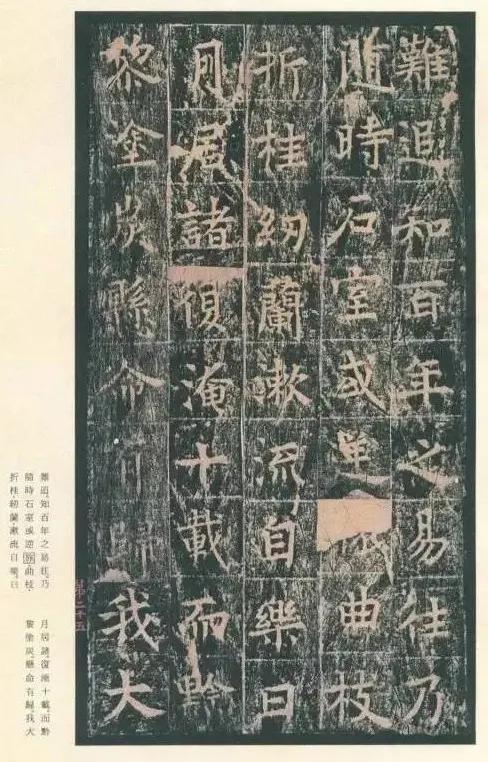 難追知百年之易往乃
随時石室或曲枝
折桂紉蘭漱流自樂日
月居諸復淹十載而黔
黎塗炭縣命有歸我大
難追,知百年之易往。乃
隨時石室,或曲枝。
折桂紉蘭,漱流自樂。日
月居諸,復淹十載。而黔
黎塗炭,懸命有歸。我大